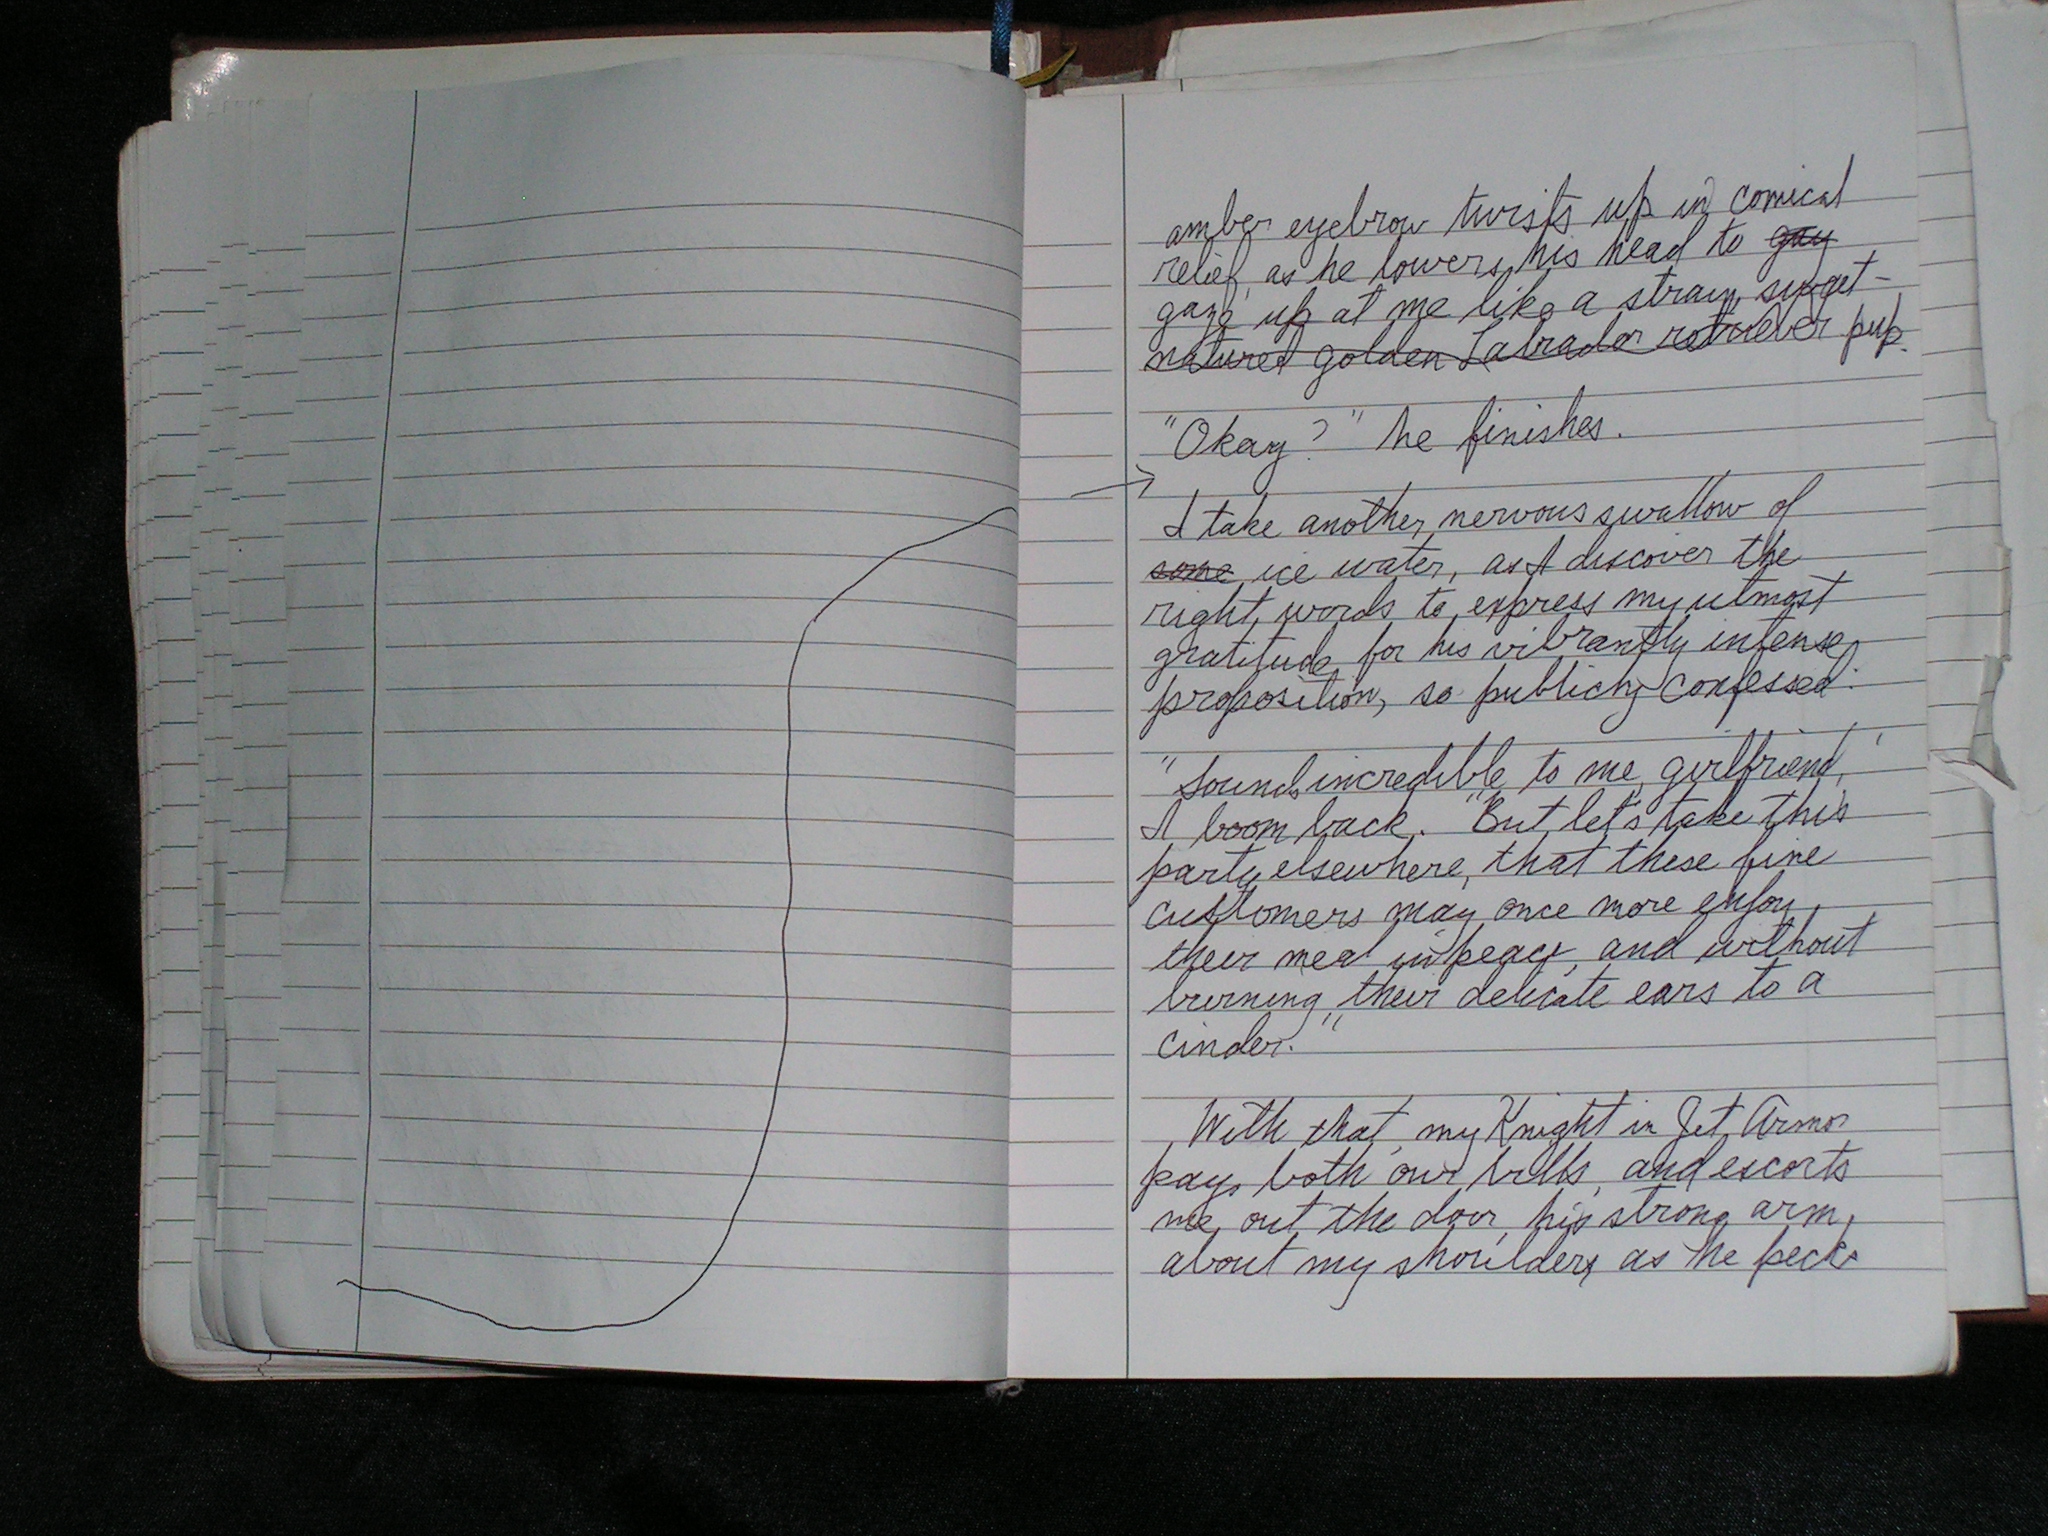 amber eyebrow twists up in comical
relief, as he lowers his head to gay
gaze up at me like a stray, sweet-
natured golden Labrador retriever pup.
"Okay?" he finishes.
I take another, nervous swallow of
some ice water, as I discover the
right words to express my utmost
gratitude for his vibrantly intense
proposition, so publicly confessed.
"Sounds incredible to me, girlfriend,"
I boom back. "But let's take this
party elsewhere, that these fine
customers may once more enjoy
their meal in peace, and without
burning their delicate ears to a
cinder."
With that, my Knight in Jet Armor
pays both our bills, and escorts
me out the door, his strong arm
about my shoulders as he pecks